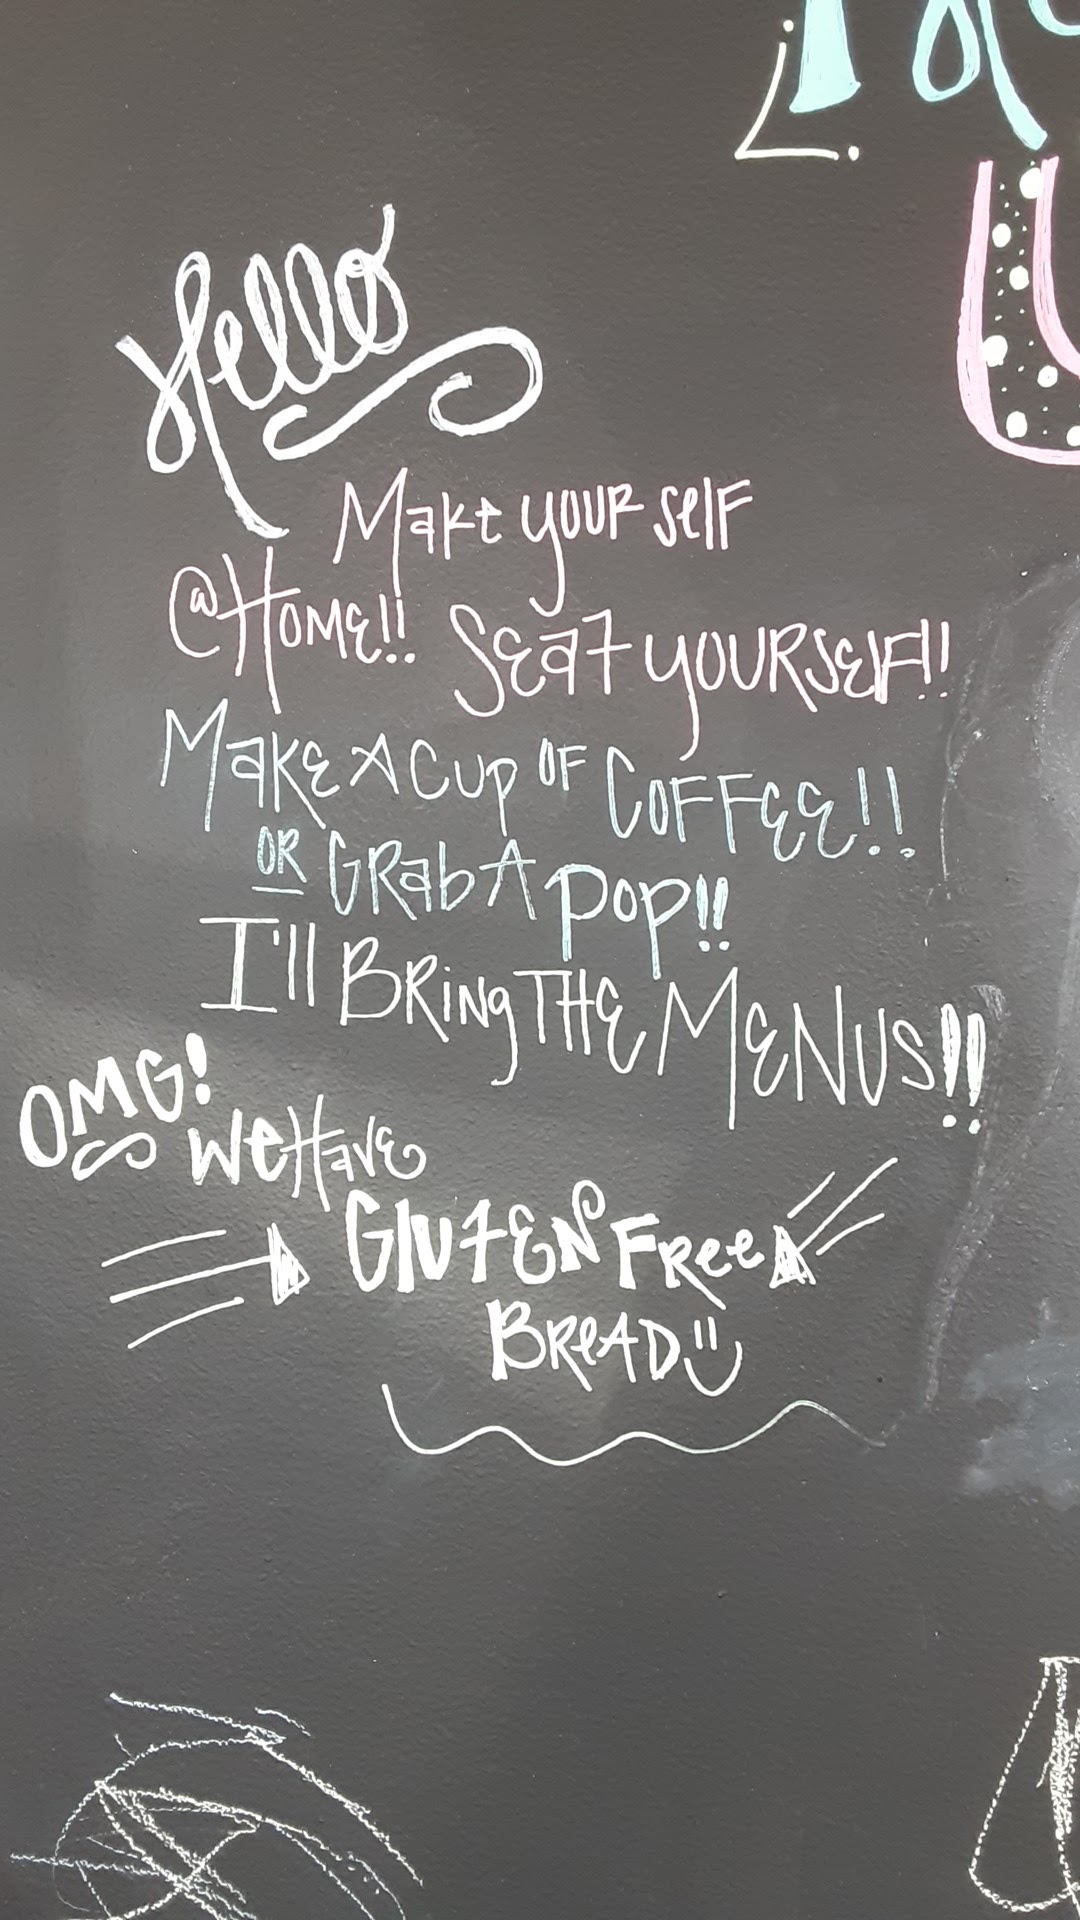 Hello
Make your self
@Home!! Seat yourself!!
Make A Cup of Coffee!!
or Grab A pop!!
I'll Bring The Menus!!
OMG!
We Have
Gluten Free
Bread